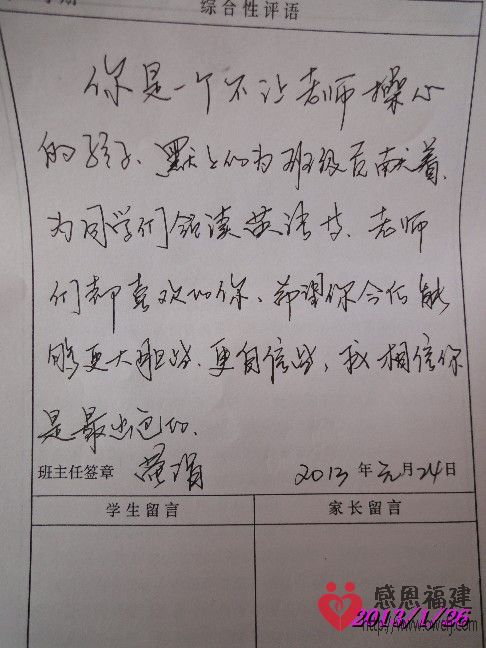 综合性评语
你是一个不让老师操心
的孩子、默默的为班级贡献着、
为同学们领读英语书、老师
们都喜欢的你、希望你今后能
够更大胆些、更自信些,我相信你
是最出色的.
班主任签章
2013年元月24日
学生留言 家长留言
感恩福建
2013/1/26